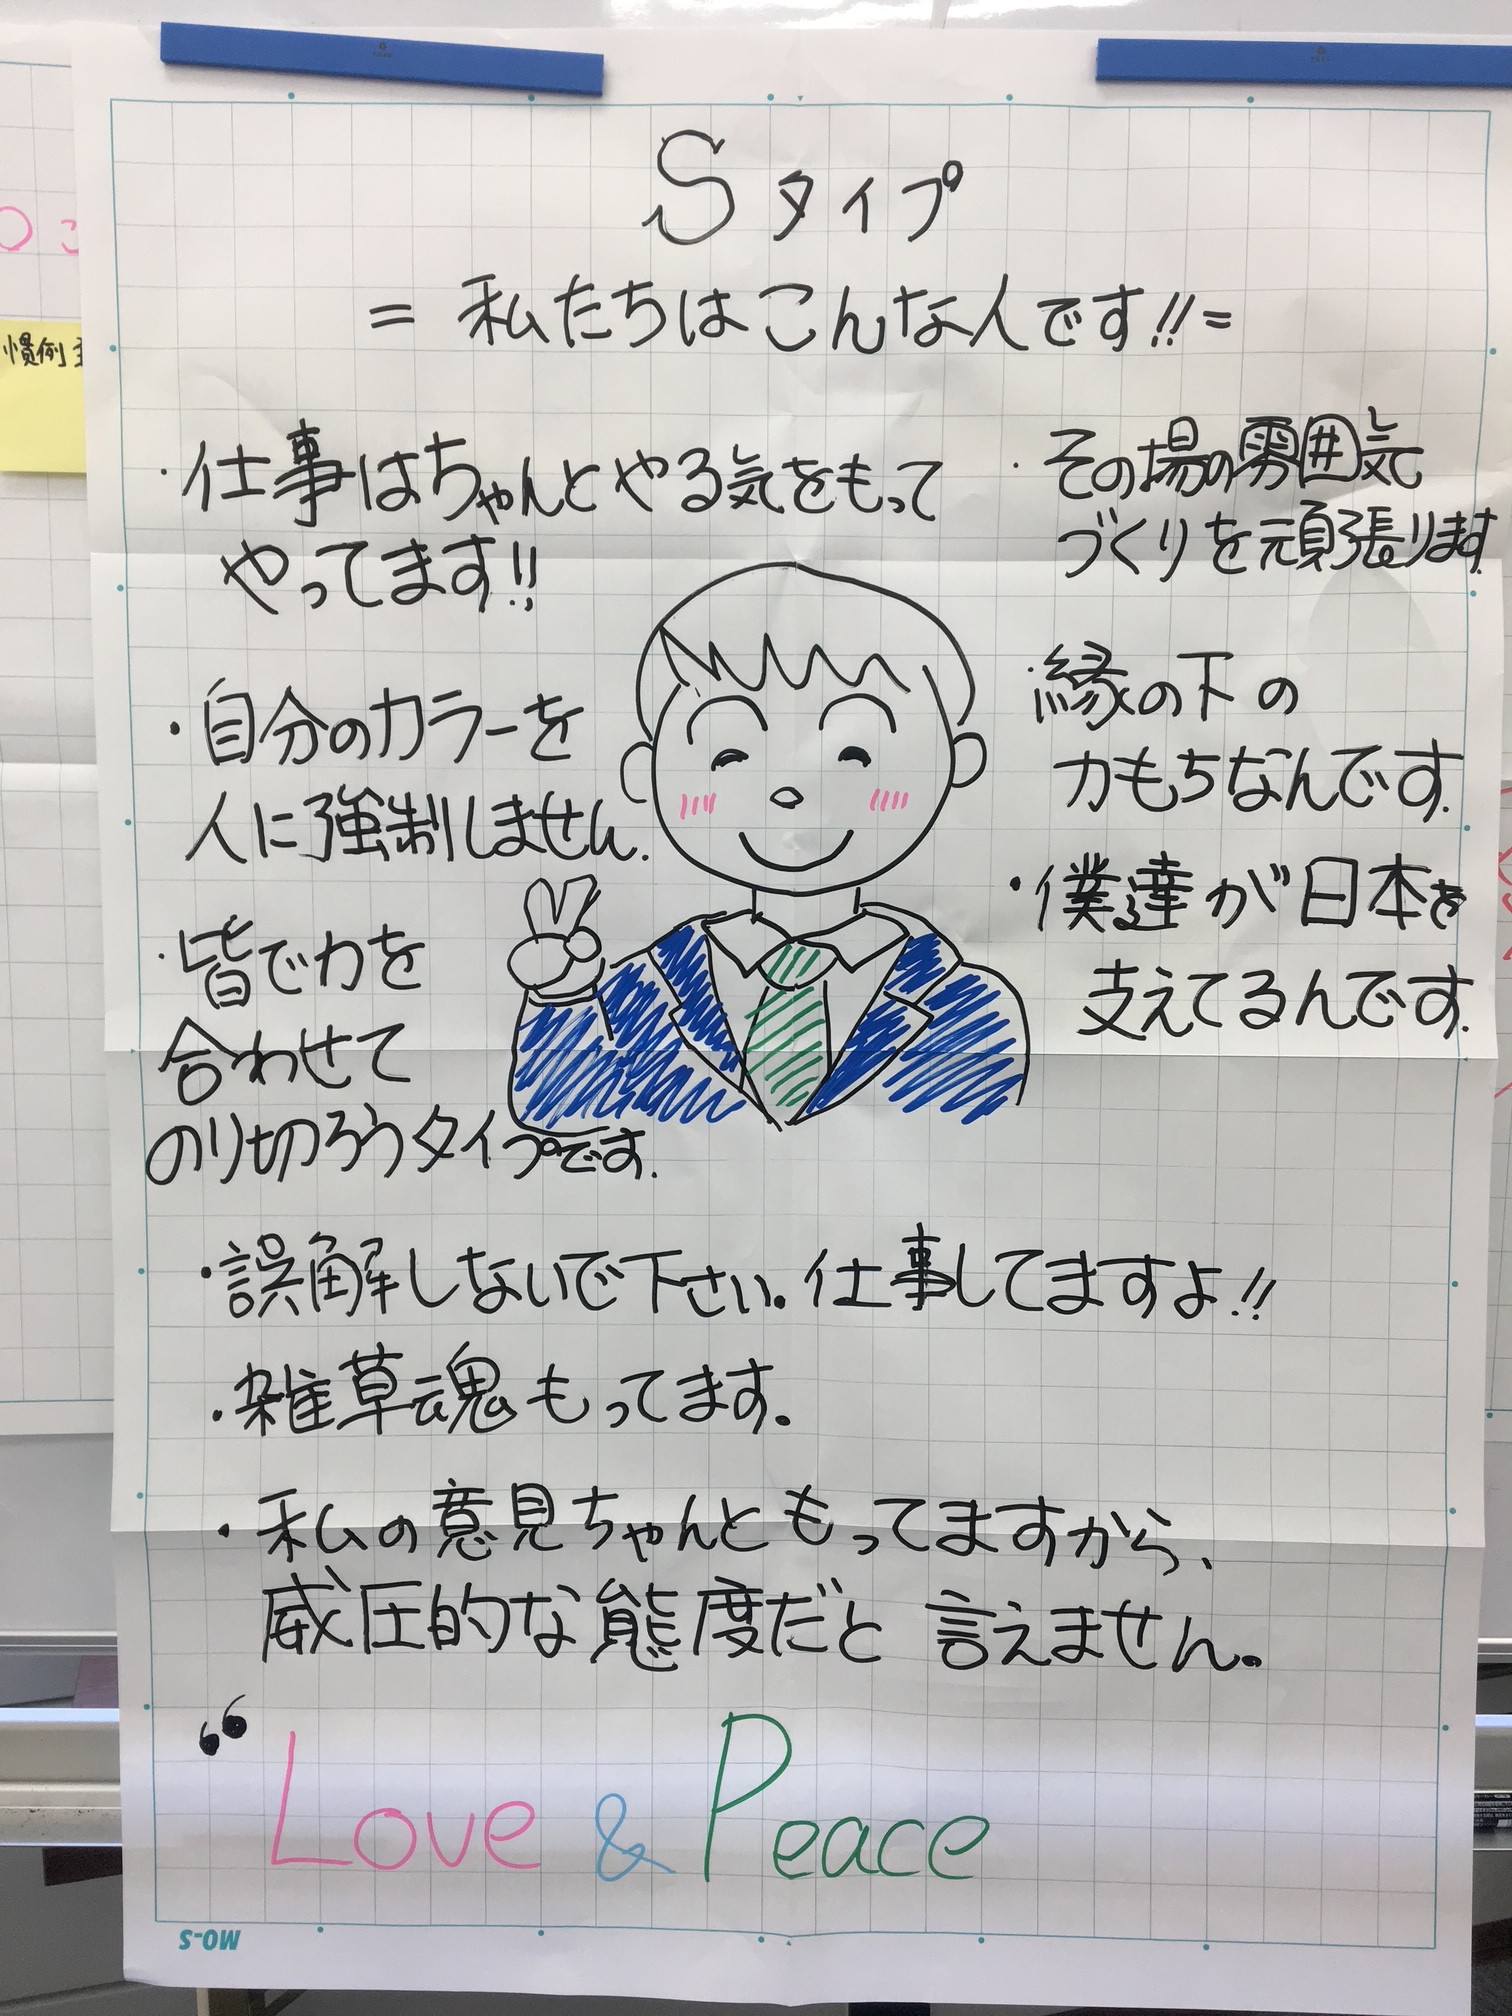 Sタイプ
= 私たちはこんな人です!! =
・仕事はちゃんとやる気をもって
やってます!!
・自分のカラーを
人に強制しません.
・皆で力を
合わせて
のり切ろうタイプです.
・その場の雰囲気
づくりを頑張ります
・縁の下の
力もちなんです.
・僕達が日本を
支えてるんです.
・誤解しないで下さい。仕事してますよ!!
・雑草魂もってます。
・私の意見ちゃんともってますから、
威圧的な態度だと言えません。
“Love & Peace
MO-S
慣例